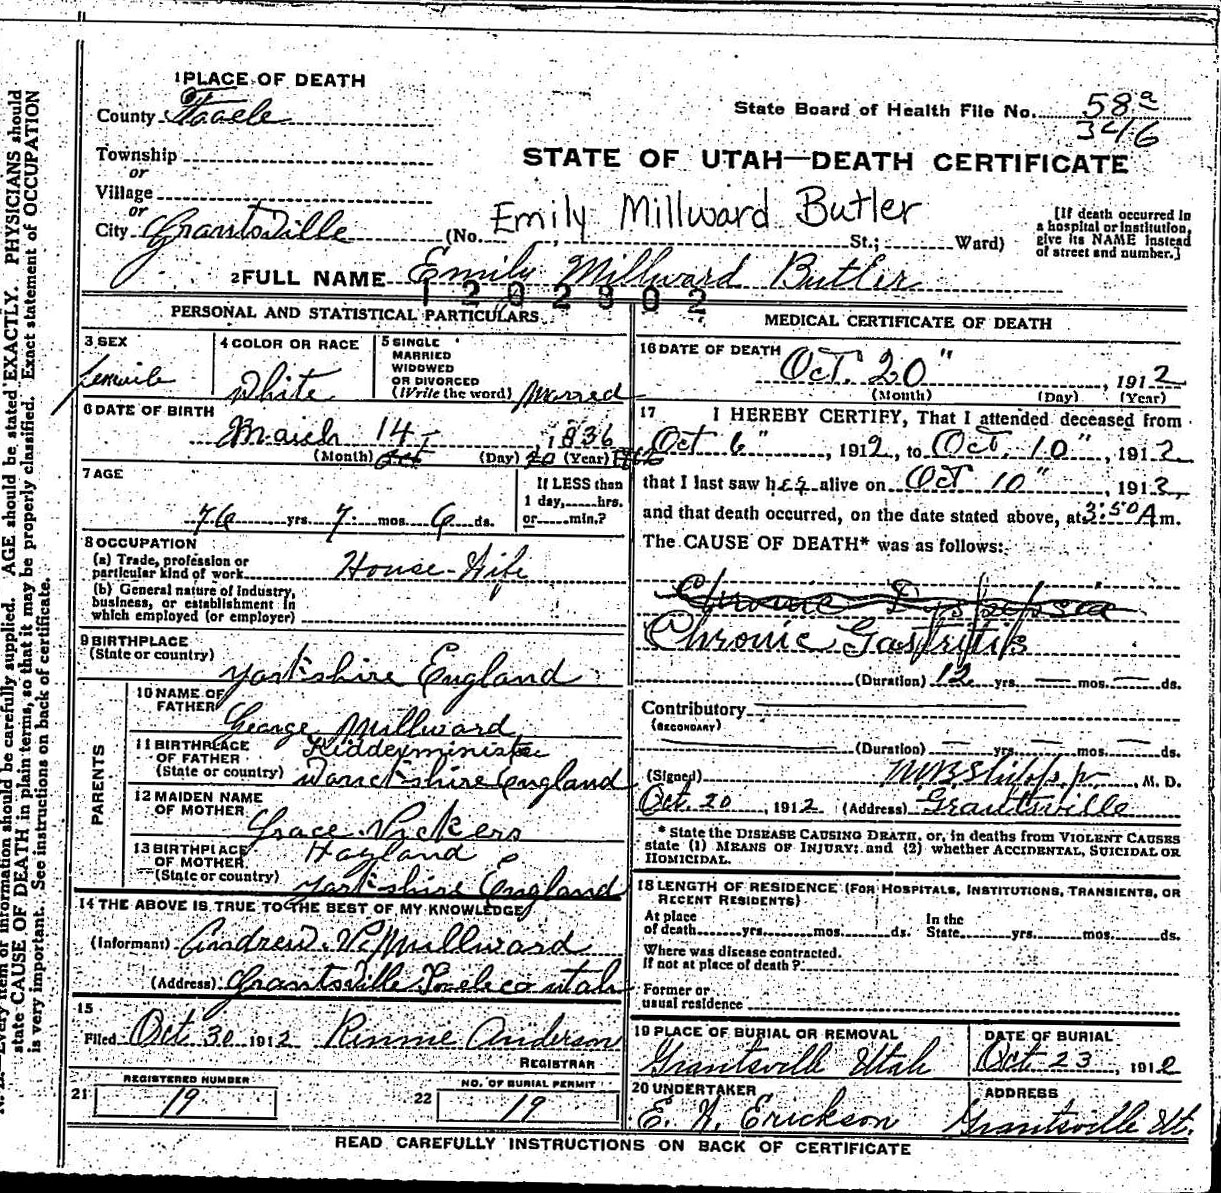 1 PLACE OF DEATH
County Tooele
State Board of Health File No. 58a
3416
Township
or
Village
or
City Grantsville
STATE OF UTAH—DEATH CERTIFICATE
Emily Millward Butler
(No. St.; Ward)
[If death occurred in
a hospital or institution,
give its NAME instead
of street and number.]
2 FULL NAME Emily Millward Butler
1202802
PERSONAL AND STATISTICAL PARTICULARS
3 SEX
Female
4 COLOR OR RACE
White
5 SINGLE
MARRIED
WIDOWED
OR DIVORCED
(Write the word) Married
6 DATE OF BIRTH
March 14, 1836
(Month) Oct (Day) 20 (Year) 1912
7 AGE
76 yrs. 7 mos. 6 ds.
If LESS than
1 day, hrs.
or min.?
8 OCCUPATION
(a) Trade, profession or
particular kind of work House-Wife
(b) General nature of industry,
business, or establishment in
which employed (or employer)
9 BIRTHPLACE
(State or country)
Yorkshire England
PARENTS
10 NAME OF
FATHER
George Millward
11 BIRTHPLACE
OF FATHER
(State or country)
Kidderminister
England
12 MAIDEN NAME
OF MOTHER
Grace Vickers
13 BIRTHPLACE
OF MOTHER
(State or country)
Hoyland
Yorkshire England
14 THE ABOVE IS TRUE TO THE BEST OF MY KNOWLEDGE
(Informant) Andrew Millward
(Address) Grantsville Tooele co utah
15
Filed Oct 30 1912 Rinnie Anderson
REGISTRAR
21 REGISTERED NUMBER
19
22 NO. OF BURIAL PERMIT
19
MEDICAL CERTIFICATE OF DEATH
16 DATE OF DEATH
Oct. 20", 1912
(Month) (Day) (Year)
17 I HEREBY CERTIFY, That I attended deceased from
Oct 6" 1912, to Oct. 10", 1912
that I last saw her alive on Oct 10", 1912,
and that death occurred, on the date stated above, at 3:50 A m.
The CAUSE OF DEATH* was as follows:
Chronic Dyspepsia
Chronic Gastritis
(Duration) 12 yrs. — mos. — ds.
Contributory
(SECONDARY)
(Duration) — yrs. — mos. — ds.
(Signed) M. D.
Oct. 20, 1912 (Address) Grantsville
* State the DISEASE CAUSING DEATH, or, in deaths from VIOLENT CAUSES
state (1) MEANS OF INJURY; and (2) whether ACCIDENTAL, SUICIDAL OR
HOMICIDAL.
18 LENGTH OF RESIDENCE (FOR HOSPITALS, INSTITUTIONS, TRANSIENTS, OR
RECENT RESIDENTS)
At place
of death yrs. mos. ds.
In the
State yrs. mos. ds.
Where was disease contracted.
If not at place of death?
Former or
usual residence
19 PLACE OF BURIAL OR REMOVAL
Grantsville Utah
DATE OF BURIAL
Oct 23, 1912
20 UNDERTAKER
E. N. Erickson
ADDRESS
Grantsville Ut.
READ CAREFULLY INSTRUCTIONS ON BACK OF CERTIFICATE
Every item of information should be carefully supplied. AGE should be stated EXACTLY. PHYSICIANS should
state CAUSE OF DEATH in plain terms, so that it may be properly classified. Exact statement of OCCUPATION
is very important. See instructions on back of certificate.